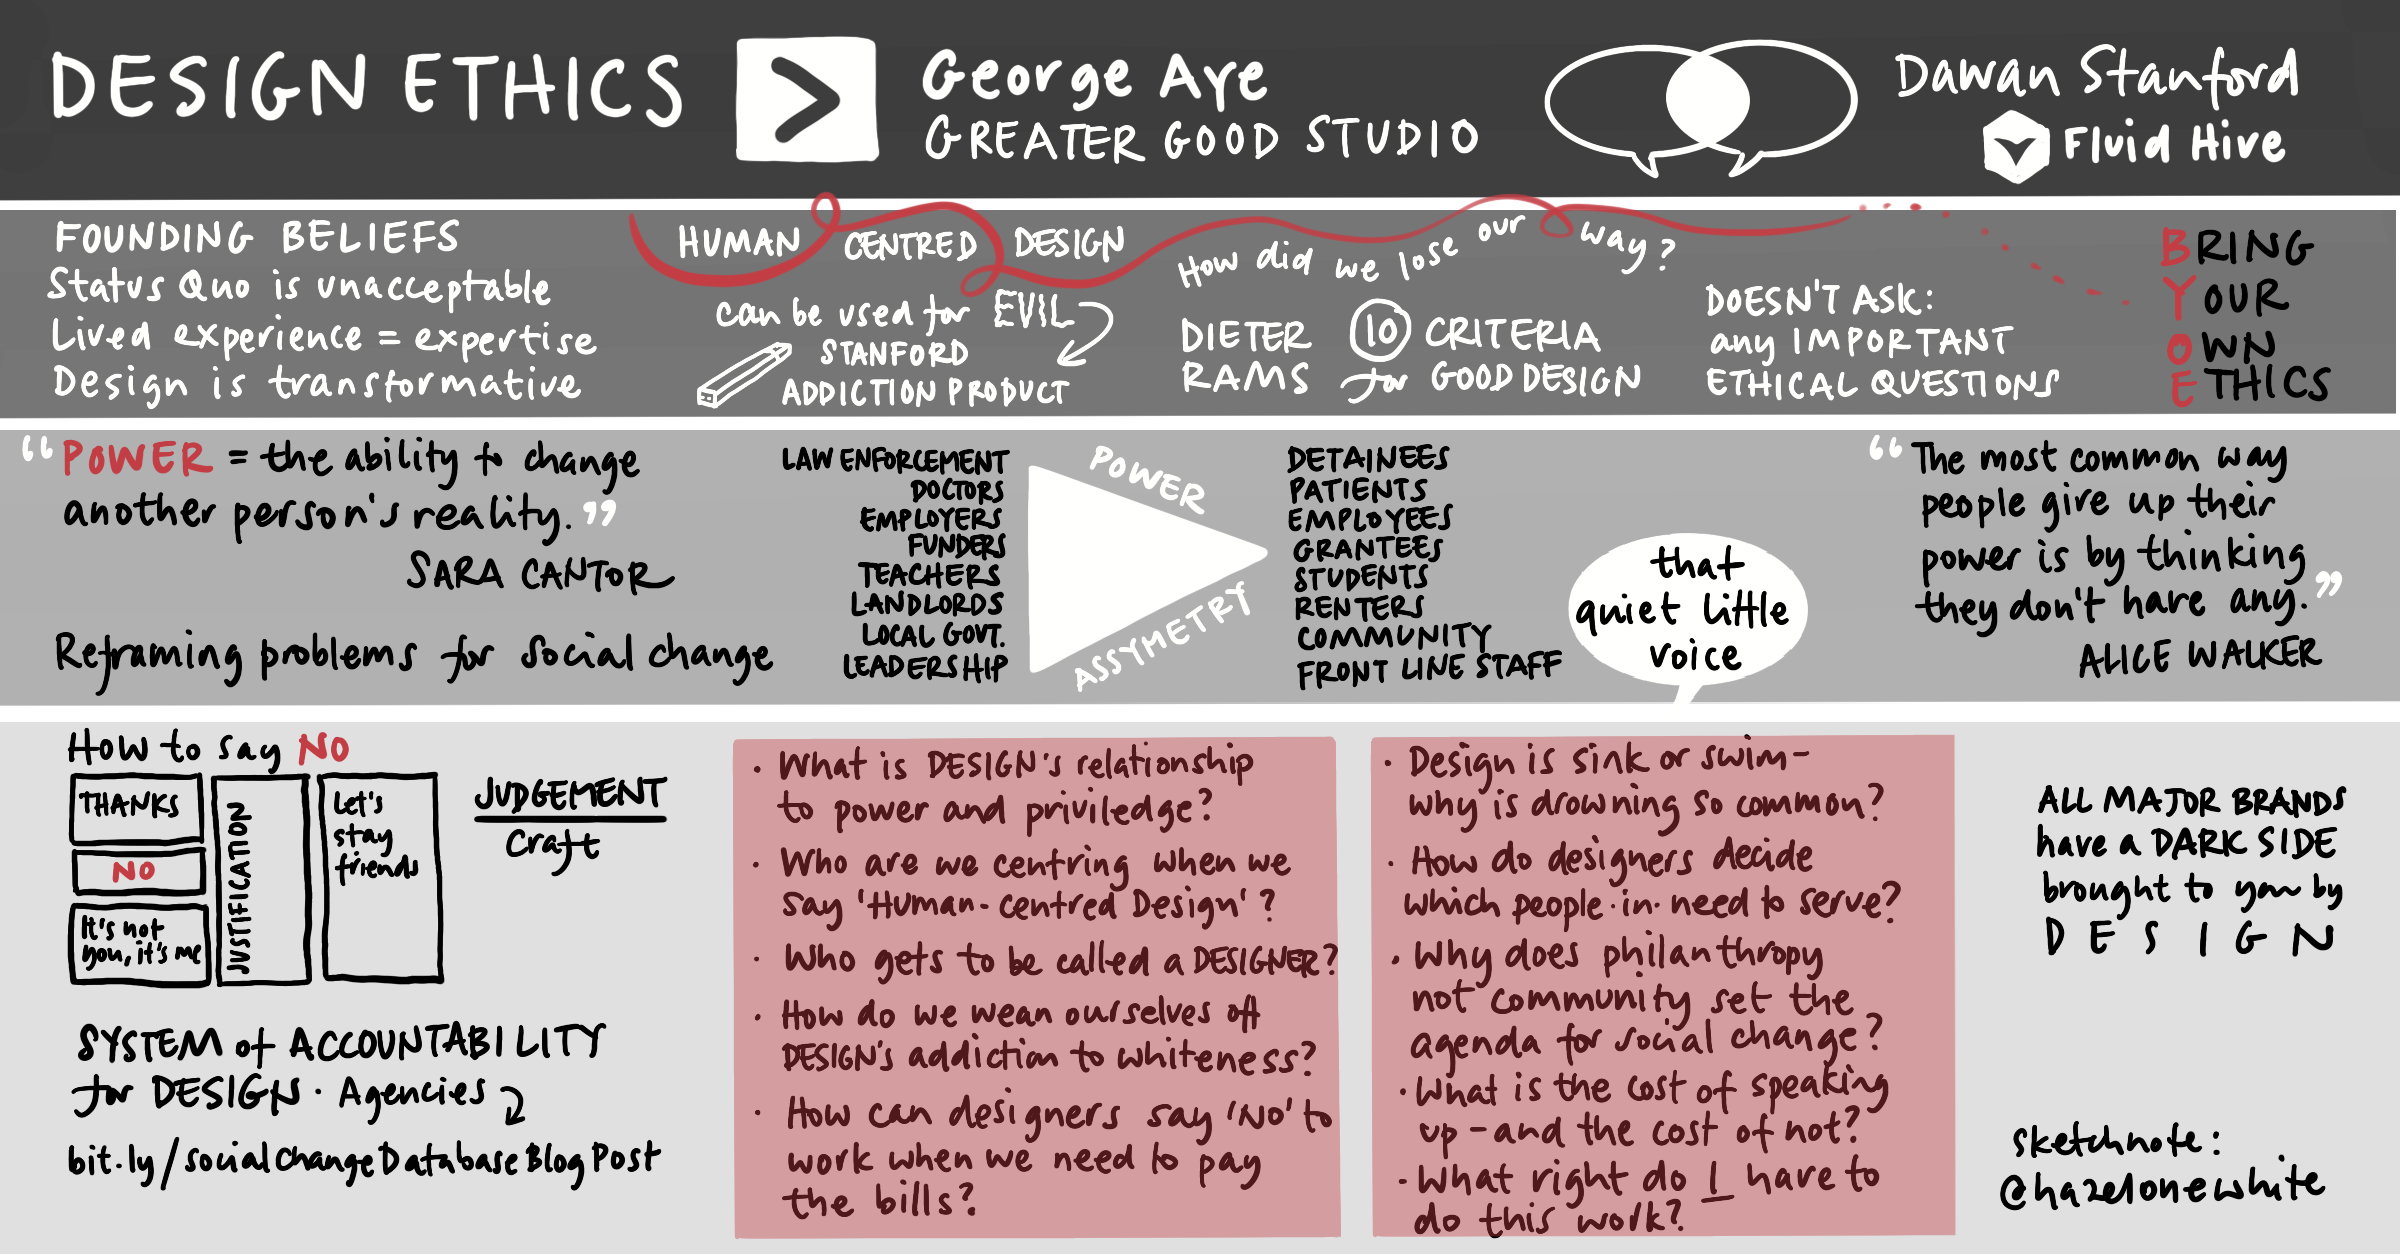 DESIGN ETHICS
George Aye
GREATER GOOD STUDIO
Dawan Stanford
Fluid Hive
FOUNDING BELIEFS
Status Quo is unacceptable
Lived experience = expertise
Design is transformative
HUMAN CENTRED DESIGN
can be used for EVIL
STANFORD
ADDICTION PRODUCT
How did we lose our way?
DIETER 10 CRITERIA
RAMS for GOOD DESIGN
DOESN'T ASK:
any IMPORTANT
ETHICAL QUESTIONS
BRING
YOUR
OWN
ETHICS
“POWER = the ability to change
another person's reality.”
SARA CANTOR
Reframing problems for social change
LAW ENFORCEMENT
DOCTORS
EMPLOYERS
FUNDERS
TEACHERS
LANDLORDS
LOCAL GOVT.
LEADERSHIP
POWER
ASSYMETRY
DETAINEES
PATIENTS
EMPLOYEES
GRANTEES
STUDENTS
RENTERS
COMMUNITY
FRONT LINE STAFF
that
quiet little
voice
“The most common way
people give up their
power is by thinking
they don't have any.”
ALICE WALKER
How to say NO
THANKS
NO
It's not
you, it's me
JUSTIFICATION
Let's
stay
friends
JUDGEMENT
Craft
SYSTEM of ACCOUNTABILITY
for DESIGN · Agencies
bit.ly/socialchangeDatabaseBlogPost
· What is DESIGN's relationship
to power and priviledge?
· Who are we centring when we
say 'Human-centred Design'?
· Who gets to be called a DESIGNER?
· How do we wean ourselves off
DESIGN's addiction to whiteness?
· How can designers say 'NO' to
work when we need to pay
the bills?
· Design is sink or swim-
why is drowning so common?
· How do designers decide
which people·in·need to serve?
· Why does philanthropy
not community set the
agenda for social change?
· What is the cost of speaking
up - and the cost of not?
· What right do I have to
do this work?
ALL MAJOR BRANDS
have a DARK SIDE
brought to you by
DESIGN
sketchnote:
@hazelonewhite